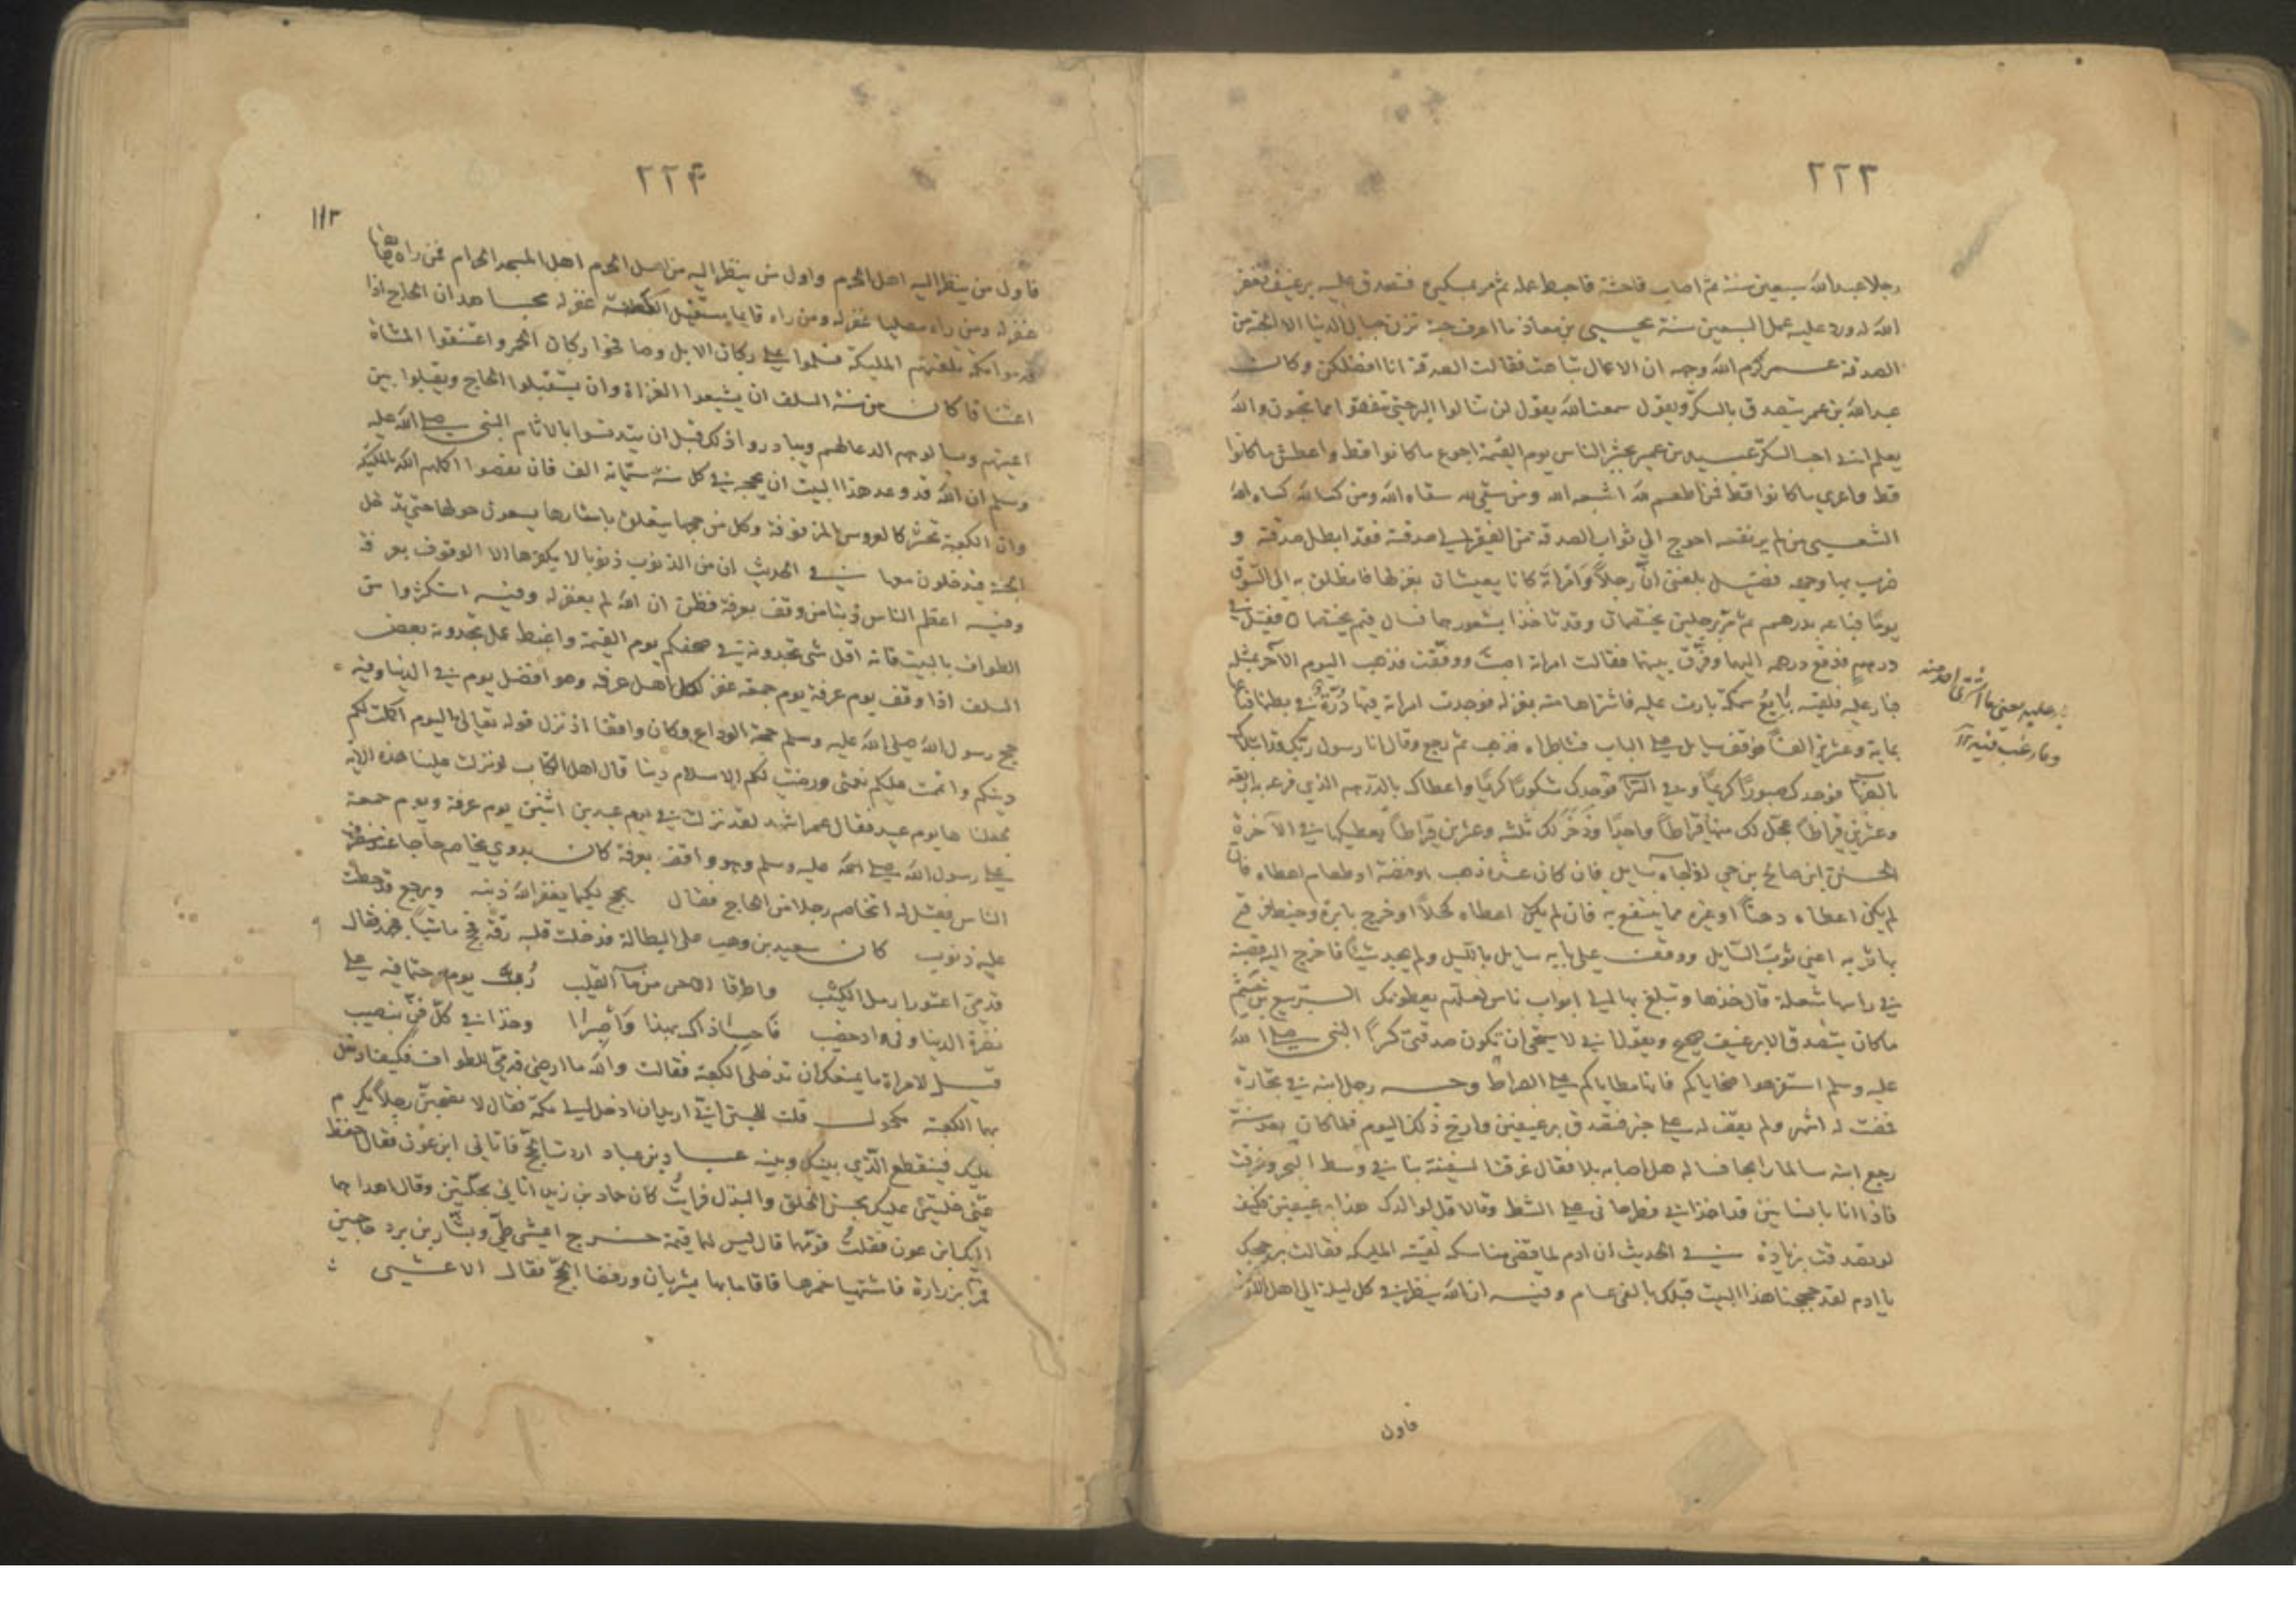 ٢٢٣
رجلا عبد الله سبعين سنة ثم اصاب فاحشة فاحبط عمله ثم مر بمسكين فتصدق عليه برغيف فغفر
الله له ورد عليه عمل السبعين سنة يحيى بن معاذ ما اعرف حبة تزن جبال الدنيا الا الحبة من
الصدقة عمر كرم الله وجهه ان الاعمال تباهت فقالت الصدقة انا افضلكن وكان
عبد الله بن عمر يتصدق بالسكر ويقول سمعت الله يقول لن تنالوا البر حتى تنفقوا مما تحبون والله
يعلم اني احب السكر عبيد بن عمير يحشر الناس يوم القيمة اجوع ما كانوا قط واعطش ما كانوا
قط واعرى ما كانوا قط فمن اطعم لله اشبعه الله ومن سقى لله سقاه الله ومن كسا لله كساه الله
الشعبي من لم ير نفسه احوج الى ثواب الصدقة من الفقير الى صدقته فقد ابطل صدقته و
ضرب بها وجهه فضيل بلغني ان رجلا وامراة كانا يعيشان بغزلها فانطلق به الى السوق
يوما فباعه بدرهم ثم مر برجلين يختصمان وقد تاخذا بشعورهما فسال فيم يختصمان فقيل في
درهم فدفع درهمه اليهما وفرق بينهما فقالت امراته اصبت ووفقت فذهب اليوم الآخر بمثله
فبار عليه فلقيه بايع سمكة بارت عليه فاشتراها منه بغزله فوجدت امراته فيها درة في بطنها فباعها
بماية وعشرين الفا فوقف سايل على الباب فشاطراه فذهب ثم رجع وقال انا رسول ربك قد ابتلاك
بالضراء فوجدك صبورا كريما وفي السراء فوجدك شكورا كريما واعطاك بالدرهم الذي فرعه به اربعة
وعشرين قيراطا عجل لك منها قيراطا واحدا وذخر لك ثلثه وعشرين قيراطا يعطيكها في الآخرة
الحسن ابن صالح بن حي لو جاه سايل فان كان عنده ذهب او فضة او طعام اعطاه فان
لم يكن اعطاه دهنا او غيره مما ينتفع به فان لم يكن اعطاه كحلا او خرج بابرة وخيط فرقع
بها ثوبه اعني ثوب السايل ووقف على بابه سايل بالليل ولم يجد شيئا فاخرج اليه قصبة
في راسها شعلة قال خذها وتبلغ بها الى ابواب ناس لعلهم يعطونك الربيع بن خثيم
ما كان يتصدق الا برغيف صحيح ويقول اني لاستحي ان تكون صدقتي كسرا النبي صلى الله
عليه وسلم استفرهوا ضحاياكم فانها مطاياكم على الصراط وجه رجل ابنه في تجارة
فمضت له اشهر ولم يقف له على خبر فتصدق برغيفين وارخ ذلك اليوم فلما كان بعد سنة
رجع ابنه سالما رابحا فساله هل اصابه بلا فقال غرقت السفينة بنا في وسط البحر وغرقت
فاذا انا بانسانين قد اخذاني فطرحاني على الشط وقالا قل لوالدك هذا برغيفين فكيف
لو تصدقت بزيادة في الحديث ان ادم لما قضى مناسكه لقيته المليكه فقالت بر حجك
يا ادم لقد حججنا هذا البيت قبلك بالفي عام وفيه ان الله ينظر في كل ليلة الى اهل الارض
وما رغب فيه
فاول
٢٢٤
١١٣
فاول من ينظر اليه اهل الحرم واول من ينظر اليه من اهل الحرم اهل المسجد الحرام فمن راه طائفا
غفر له ومن راه مصليا غفر له ومن راه قايما يستقبل الكعبة غفر له مجاهد ان الحاج اذا
قدموا مكة تلقتهم المليكة فسلموا على ركبان الابل وصافحوا ركبان الحمر واعتنقوا المشاة
اعتناقا كان من سنة السلف ان يشيعوا الغزاة وان يستقبلوا الحاج ويقبلوا بين
اعينهم ويسالوهم الدعا لهم ويبادروا ذلك قبل ان يتدنسوا بالاثام النبي صلى الله عليه
وسلم ان الله قد وعد هذا البيت ان يحجه في كل سنة ستماية الف فان نقصوا اكملهم الله بالمليكة
وان الكعبة تحشر كالعروس المزفوفة وكل من حجها يتعلق باستارها يسعون حولها حتى تدخل
الجنة فيدخلون معها في الحديث ان من الذنوب ذنوبا لا يكفرها الا الوقوف بعرفة
وفيه اعظم الناس ذنبا من وقف بعرفة فظن ان الله لم يغفر له وفيه استكثروا من
الطواف بالبيت فانه اقل شى تجدونه في صحفكم يوم القيمة واغبط عمل تجدونه بعض
السلف اذا وقف يوم عرفة يوم جمعة غفر لكل اهل عرفة وهو افضل يوم في الدنيا وفيه
حج رسول الله صلى الله عليه وسلم حجة الوداع وكان واقفا اذ نزل قوله تعالى اليوم اكملت لكم
دينكم واتممت عليكم نعمتى ورضيت لكم الاسلام دينا قال اهل الكتاب لو نزلت علينا هذه الآية
لجعلناها يوم عيد فقال عمر اشهد لقد نزلت في يوم عيدين اثنين يوم عرفة ويوم جمعة
على رسول الله صلى الله عليه وسلم وهو واقف بعرفة كان بدوي يخاصم حاجا عند منصرف
الناس فقيل له اتخاصم رجلا من الحاج فقال يحج لكيما يغفر الله ذنبه ويرجع قد حطت
عليه ذنوب كان سعيد بن وهب على البطالة فدخلت قلبه رقة فحج ماشيا فجهد فقال
قدمي اعتورا رمل الكثيب واطرقا الآجن من مآء القليب رب يوم رحتما فيه على
نضرة الدنيا وفي واد خصيب فاحسبا ذاك بهذا واصبرا وخذا من كل فن بنصيب
قيل لامراة ما يمنعك ان تدخلي الكعبة فقالت والله ما ارضى قدمي للطواف فكيف ادخل
بها الكعبة مكحول قلت للحسن اني اريد ان ادخل الى مكة فقال لا تصحبن رجلا يكرم
عليك فينقطع الذي بينك وبينه عباد بن عباد اردت الحج فاتاني ابن عون فقال احفظ
عني خلتين عليك بحسن الخلق والبذل فرايت كان حماد بن زيد اتاني بحلتين وقال اهداهما
اليك ابن عون فقلت قومها قال ليس لها قيمة خرج اعشى طي وبشار بن برد حاجين
فمرا بزرارة فاشتهيا خمرها فاقاما بها يشربان ورفضا الحج فقال الاعشى